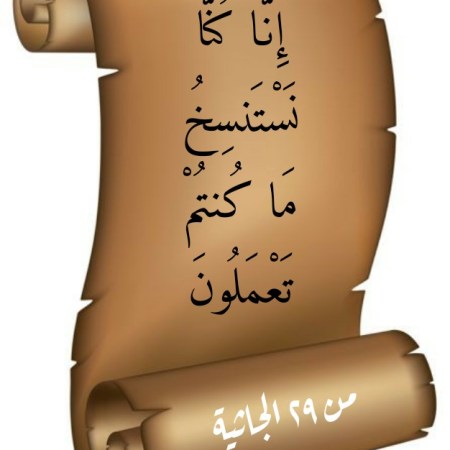 إِنَّا كُنَّا
نَسْتَنسِخُ
مَا كُنتُمْ
تَعْمَلُونَ
من ٢٩ الجاثية